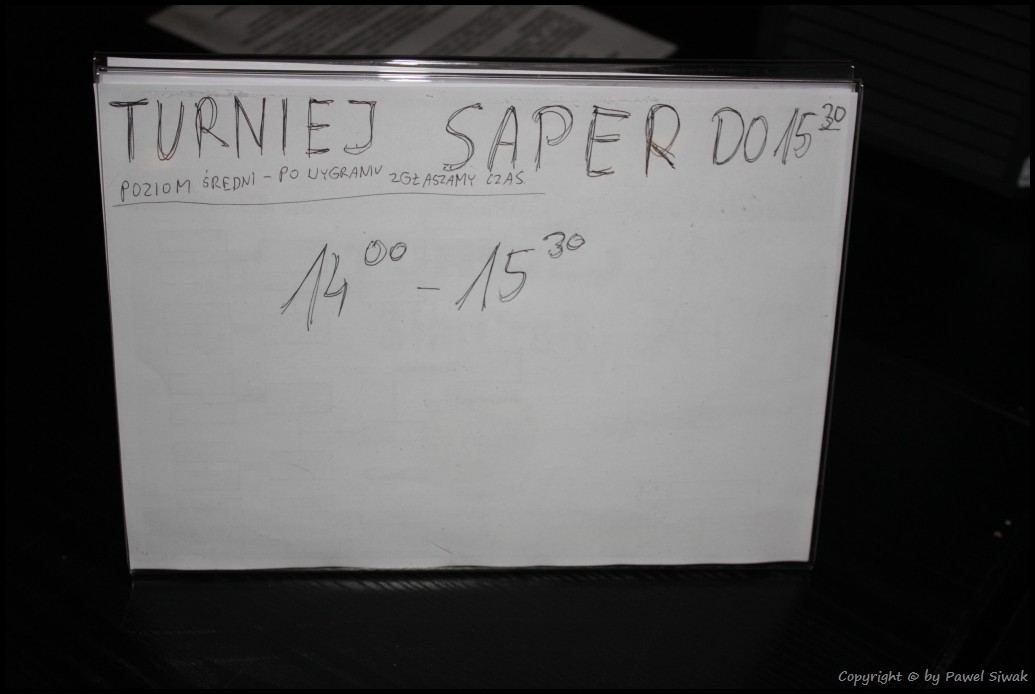 TURNIEJ SAPER DO 15³⁰
POZIOM ŚREDNI - PO WYGRANIU ZGŁASZAMY CZAS
14⁰⁰ - 15³⁰
Copyright © by Pawel Siwak